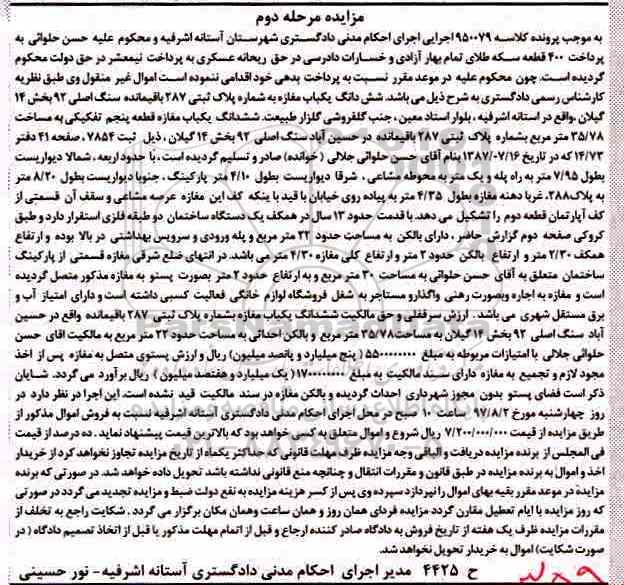 مزایده مرحله دوم
به موجب پرونده کلاسه ۹۵۰۰۷۹ اجرایی اجرای احکام مدنی دادگستری شهرستان آستانه اشرفیه و محکوم علیه حسن حلوائی به
پرداخت ۴۰۰ قطعه سکه طلای تمام بهار آزادی و خسارات دادرسی در حق ریحانه عسکری به پرداخت نیمعشر در حق دولت محکوم
گردیده است. چون محکوم علیه در موعد مقرر نسبت به پرداخت بدهی خود اقدامی ننموده است اموال غیر منقول وی طبق نظریه
کارشناس رسمی دادگستری به شرح ذیل می باشد. شش دانگ یکباب مغازه به شماره پلاک ثبتی ۲۸۷ باقیمانده سنگ اصلی ۹۲ بخش ۱۴
گیلان ،واقع در آستانه اشرفیه ، بلوار استاد معین ، جنب گلفروشی گلزار طبیعت. ششدانگ یکباب مغازه قطعه پنجم تفکیکی به مساحت
۳۵/۷۸ متر مربع بشماره پلاک ثبتی ۲۸۷ باقیمانده در حسین آباد سنگ اصلی ۹۲ بخش ۱۴ گیلان ، ذیل ثبت ۷۸۵۴ ، صفحه ۴۱ دفتر
۱۴/۷۳ که در تاریخ ۱۳۸۷/۰۷/۱۶ بنام آقای حسن حلوائی جلالی (خوانده) صادر و تسلیم گردیده است ، با حدود اربعه ، شمالا دیواریست
بطول ۷/۹۵ متر به راه پله و یک متر به محوطه مشاعی ، شرقا دیواریست بطول ۴/۱۰ متر پارکینگ ، جنوبا دیواریست بطول ۸/۲۰ متر
به پلاک۲۸۸، غربا دهنه مغازه بطول ۴/۳۵ متر به پیاده روی خیابان با قید با ینکه کف این مغازه عرصه مشاعی و سقف آن قسمتی از
کف آپارتمان قطعه دوم را تشکیل می دهد. با قدمت حدود ۱۳ سال در همکف یک دستگاه ساختمان دو طبقه فلزی استقرار دارد و طبق
کروکی صفحه دوم گزارش حاضر ، دارای بالکن به مساحت حدود ۲۲ متر مربع و پله ورودی و سرویس بهداشتی در بالا بوده و ارتفاع
همکف ۲/۳۰ متر و ارتفاع بالکن حدود ۲ متر و ارتفاع کلی مغازه ۴/۳۰ متر می باشد. در انتهای ضلع شرقی مغازه قسمتی از پارکینگ
ساختمان متعلق به آقای حسن حلوائی به مساحت ۳۰ متر مربع و به ارتفاع حدود ۲ متر بصورت پستو به مغازه مذکور متصل گردیده
است و مغازه به اجاره وبصورت رهنی واگذارو مستاجر به شغل فروشگاه لوازم خانگی فعالیت کسبی داشته است و دارای امتیاز آب و
برق مستقل شهری می باشد . ارزش سرقفلی و حق مالکیت ششدانگ یکباب مغازه بشماره پلاک ثبتی ۲۸۷ باقیمانده واقع در حسین
آباد سنگ اصلی ۹۲ بخش ۱۴ گیلان به مساحت ۳۵/۷۸ متر مربع و بالکن احداثی به مساحت حدود ۲۲ متر مربع به مالکیت اقای حسن
حلوائی جلالی با امتیازات مربوطه به مبلغ ۵۵۰۰۰۰۰۰۰۰ ( پنج میلیارد و پانصد میلیون) ریال و ارزش پستوی متصل به مغازه پس از اخذ
مجوز لازم و تجمیع به مغازه دارای سند مالکیت به مبلغ ۱۷۰۰۰۰۰۰۰۰ ( یک میلیارد و هفتصد میلیون ) ریال برآورد می گردد. شایان
ذکر است فضای پستو بدون مجوز شهرداری احداث گردیده و بالکن مغازه در سند مالکیت قید نشده است. این اجرا در نظر دارد در
روز چهارشنبه مورخ ۹۷/۸/۲ ساعت ۱۰ صبح در محل اجرای احکام مدنی دادگستری آستانه اشرفیه نسبت به فروش اموال مذکور از
طریق مزایده از قیمت ۷/۲۰۰/۰۰۰/۰۰۰ ریال شروع و اموال متعلق به کسی خواهد بود که بالاترین قیمت پیشنهاد نماید . ده درصد از قیمت
فی المجلس از برنده مزایده دریافت و الباقی وجه مزایده ظرف مهلت قانونی که حداکثر یکماه از تاریخ مزایده تجاوز نخواهد کرد از خریدار
اخذ و اموال به برنده مزایده در طبق قانون و مقررات انتقال و چنانچه منع قانونی نداشته باشد تحویل داده خواهد شد. در صورتی که برنده
مزایده در موعد مقرر بقیه بهای اموال را نپردازد سپرده وی پس از کسر هزینه مزایده به نفع دولت ضبط و مزایده تجدید می گردد در صورتی
که روز مزایده با ایام تعطیل مقارن گردد مزایده فردای همان روز و همان ساعت وهمان مکان برگزار می گردد . شکایت راجع به تخلف از
مقررات مزایده ظرف یک هفته از تاریخ فروش به دادگاه صادر کننده ارجاع و قبل از اتمام مهلت مذکور یا قبل از اتخاذ تصمیم دادگاه ( در
صورت شکایت) اموال به خریدار تحویل نخواهد شد.
ح ۴۴۲۵ مدیر اجرای احکام مدنی دادگستری آستانه اشرفیه- نور حسینی